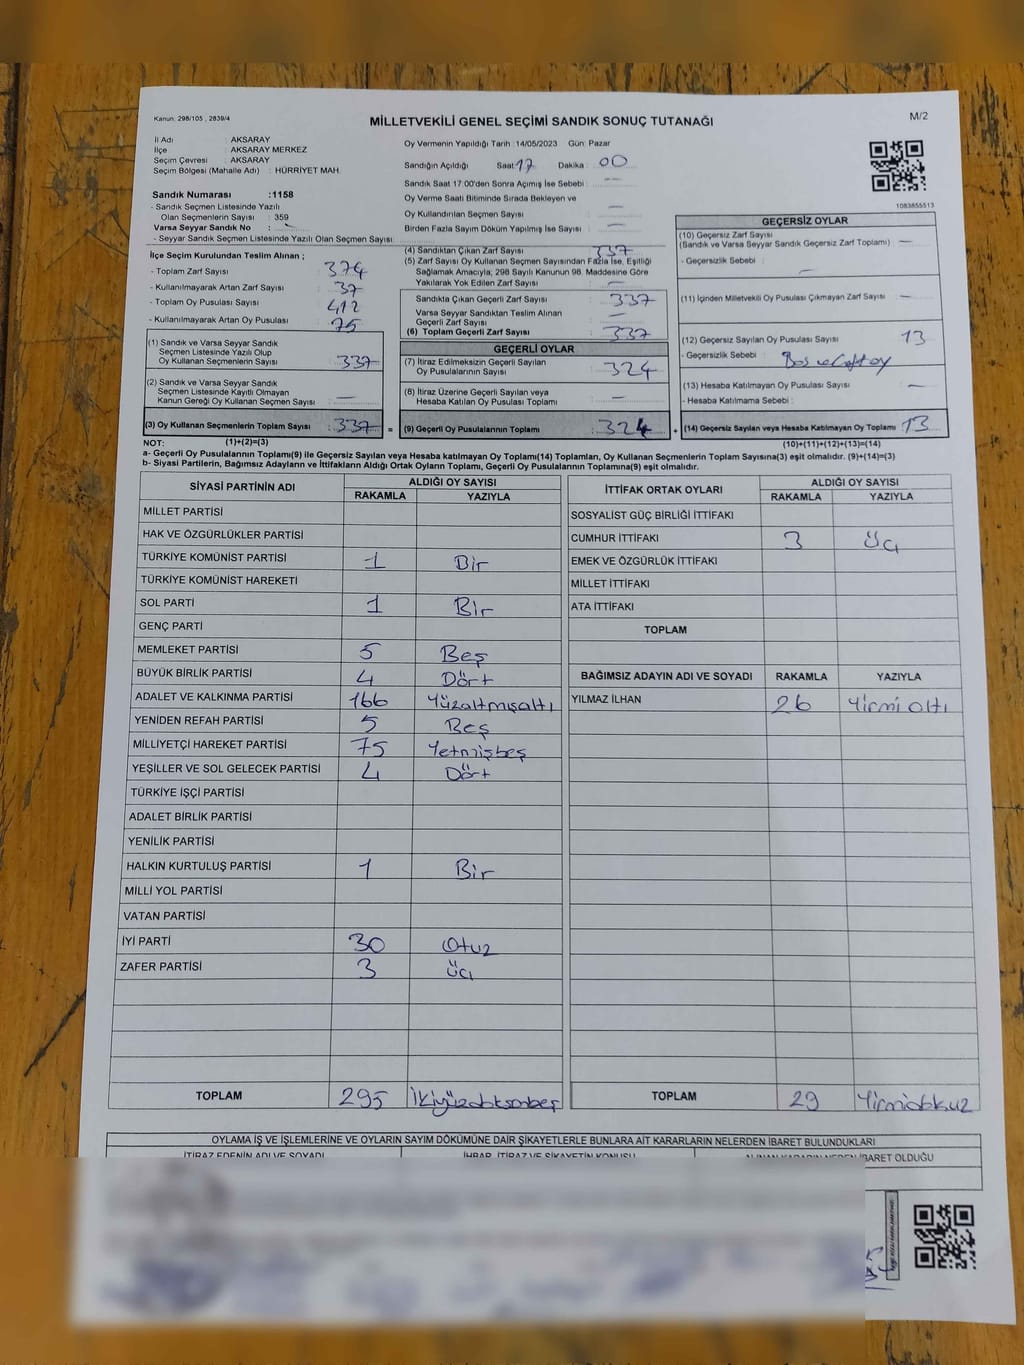 Kanun: 298/105 , 2839/4
MİLLETVEKİLİ GENEL SEÇİMİ SANDIK SONUÇ TUTANAĞI
M/2
İl Adı : AKSARAY
İlçe : AKSARAY MERKEZ
Seçim Çevresi : AKSARAY
Seçim Bölgesi (Mahalle Adı) : HÜRRİYET MAH.
Sandık Numarası :1158
- Sandık Seçmen Listesinde Yazılı
Olan Seçmenlerin Sayısı : 359
Varsa Seyyar Sandık No :
- Seyyar Sandık Seçmen Listesinde Yazılı Olan Seçmen Sayısı
İlçe Seçim Kurulundan Teslim Alınan ;
- Toplam Zarf Sayısı : 374
- Kullanılmayarak Artan Zarf Sayısı : 37
- Toplam Oy Pusulası Sayısı : 412
- Kullanılmayarak Artan Oy Pusulası : 75
(1) Sandık ve Varsa Seyyar Sandık
Seçmen Listesinde Yazılı Olup
Oy Kullanan Seçmenlerin Sayısı : 337
(2) Sandık ve Varsa Seyyar Sandık
Seçmen Listesinde Kayıtlı Olmayan
Kanun Gereği Oy Kullanan Seçmen Sayısı : —
(3) Oy Kullanan Seçmenlerin Toplam Sayısı : 337 =
Oy Vermenin Yapıldığı Tarih :14/05/2023 Gün: Pazar
Sandığın Açıldığı Saat: 17 Dakika : 00
Sandık Saat 17.00'den Sonra Açımış İse Sebebi : —
Oy Verme Saati Bitiminde Sırada Bekleyen ve
Oy Kullandırılan Seçmen Sayısı : —
Birden Fazla Sayım Döküm Yapılmış İse Sayısı : —
(4) Sandıktan Çıkan Zarf Sayısı : 337
(5) Zarf Sayısı Oy Kullanan Seçmen Sayısından Fazla İse, Eşitliği
Sağlamak Amacıyla, 298 Sayılı Kanunun 98. Maddesine Göre
Yakılarak Yok Edilen Zarf Sayısı : —
Sandıkta Çıkan Geçerli Zarf Sayısı : 337
Varsa Seyyar Sandıktan Teslim Alınan
Geçerli Zarf Sayısı : —
(6) Toplam Geçerli Zarf Sayısı : 337
GEÇERLİ OYLAR
(7) İtiraz Edilmeksizin Geçerli Sayılan
Oy Pusulalarının Sayısı : 324
(8) İtiraz Üzerine Geçerli Sayılan veya
Hesaba Katılan Oy Pusulası Toplamı : —
(9) Geçerli Oy Pusulalarının Toplamı : 324 +
1083855513
GEÇERSİZ OYLAR
(10) Geçersiz Zarf Sayısı
(Sandık ve Varsa Seyyar Sandık Geçersiz Zarf Toplamı) : —
- Geçersizlik Sebebi : —
(11) İçinden Milletvekili Oy Pusulası Çıkmayan Zarf Sayısı : —
(12) Geçersiz Sayılan Oy Pusulası Sayısı : 13
- Geçersizlik Sebebi : Boş ve Çift oy
(13) Hesaba Katılmayan Oy Pusulası Sayısı : —
- Hesaba Katılmama Sebebi :
(14) Geçersiz Sayılan veya Hesaba Katılmayan Oy Toplamı : 13
NOT: (1)+(2)=(3) (10)+(11)+(12)+(13)=(14)
a- Geçerli Oy Pusulalarının Toplamı(9) ile Geçersiz Sayılan veya Hesaba katılmayan Oy Toplamı(14) Toplamları, Oy Kullanan Seçmenlerin Toplam Sayısına(3) eşit olmalıdır. (9)+(14)=(3)
b- Siyasi Partilerin, Bağımsız Adayların ve İttifakların Aldığı Ortak Oyların Toplamı, Geçerli Oy Pusulalarının Toplamına(9) eşit olmalıdır.
SİYASİ PARTİNİN ADI ALDIĞI OY SAYISI
RAKAMLA YAZIYLA
MİLLET PARTİSİ
HAK VE ÖZGÜRLÜKLER PARTİSİ
TÜRKİYE KOMÜNİST PARTİSİ 1 Bir
TÜRKİYE KOMÜNİST HAREKETİ
SOL PARTİ 1 Bir
GENÇ PARTİ
MEMLEKET PARTİSİ 5 Beş
BÜYÜK BİRLİK PARTİSİ 4 Dört
ADALET VE KALKINMA PARTİSİ 166 Yüzaltmışaltı
YENİDEN REFAH PARTİSİ 5 Beş
MİLLİYETÇİ HAREKET PARTİSİ 75 Yetmişbeş
YEŞİLLER VE SOL GELECEK PARTİSİ 4 Dört
TÜRKİYE İŞÇİ PARTİSİ
ADALET BİRLİK PARTİSİ
YENİLİK PARTİSİ
HALKIN KURTULUŞ PARTİSİ 1 Bir
MİLLİ YOL PARTİSİ
VATAN PARTİSİ
İYİ PARTİ 30 Otuz
ZAFER PARTİSİ 3 Üç
TOPLAM 295 İkiyüzdoksanbeş
İTTİFAK ORTAK OYLARI ALDIĞI OY SAYISI
RAKAMLA YAZIYLA
SOSYALİST GÜÇ BİRLİĞİ İTTİFAKI
CUMHUR İTTİFAKI 3 Üç
EMEK VE ÖZGÜRLÜK İTTİFAKI
MİLLET İTTİFAKI
ATA İTTİFAKI
TOPLAM
BAĞIMSIZ ADAYIN ADI VE SOYADI RAKAMLA YAZIYLA
YILMAZ İLHAN 26 Yirmi altı
TOPLAM 29 Yirmidokuz
OYLAMA İŞ VE İŞLEMLERİNE VE OYLARIN SAYIM DÖKÜMÜNE DAİR ŞİKAYETLERLE BUNLARA AİT KARARLARIN NELERDEN İBARET BULUNDUKLARI
İTİRAZ EDENİN ADI VE SOYADI İHBAR, İTİRAZ VE ŞİKAYETİN KONUSU ALINAN KARARIN NEDEN İBARET OLDUĞU